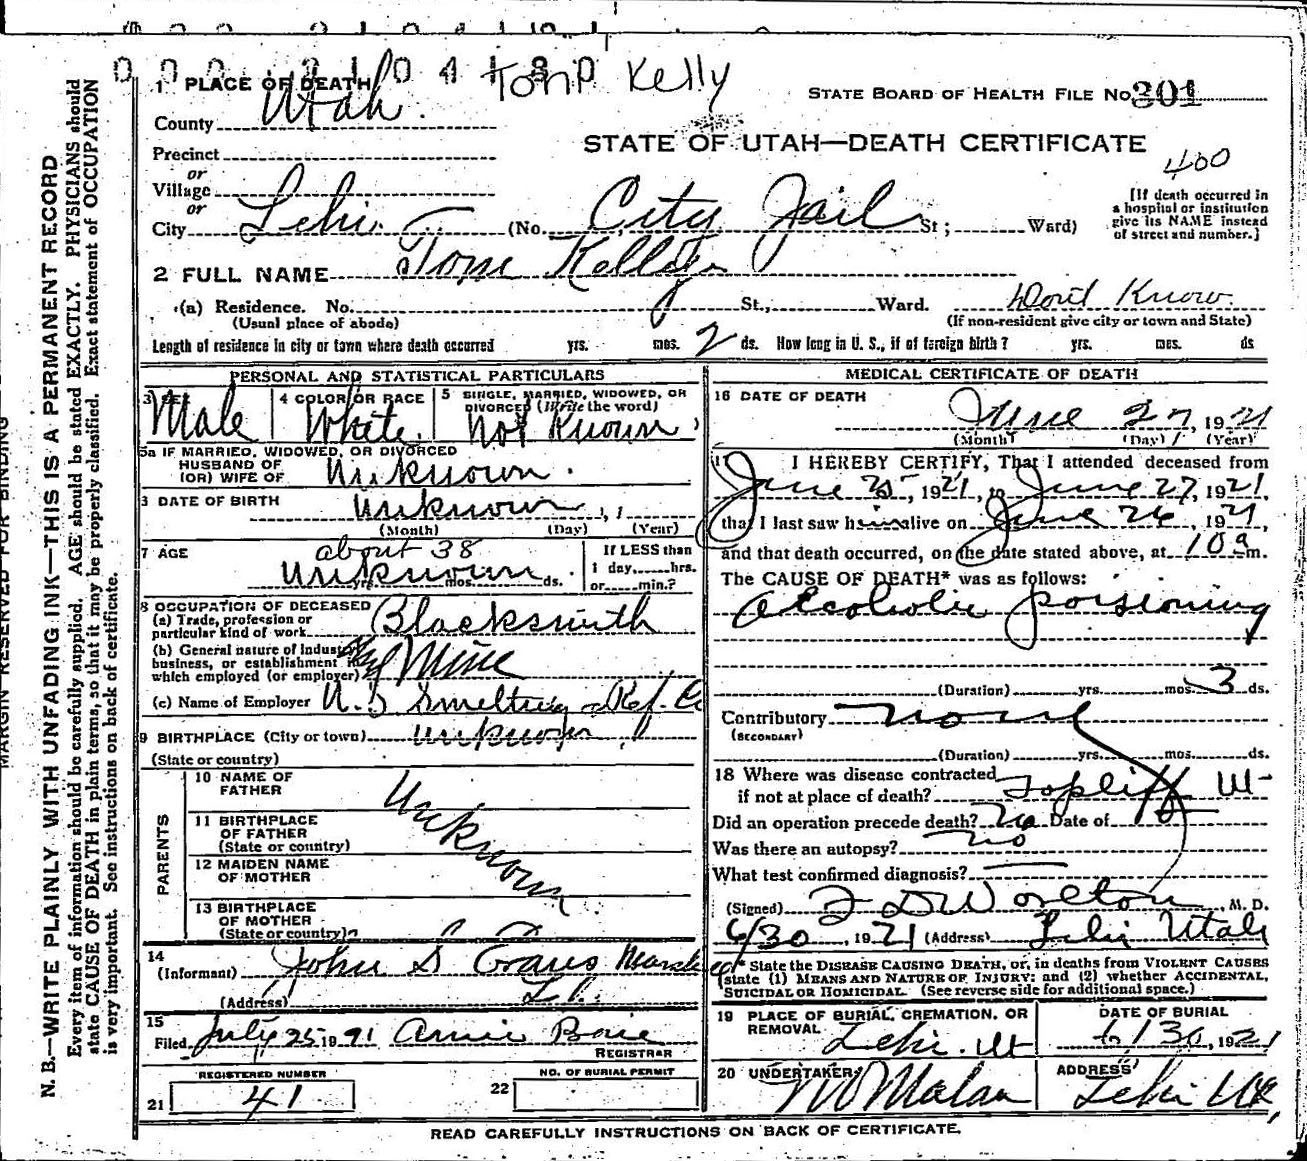 0002104180 Tom Kelly
1 PLACE OF DEATH
STATE BOARD OF HEALTH FILE No. 301
County Utah
STATE OF UTAH—DEATH CERTIFICATE
Precinct
400
or
Village
or
City Lehi (No. City Jail St; Ward)
[If death occurred in
a hospital or institution
give its NAME instead
of street and number.]
2 FULL NAME Tom Kelly
(a) Residence. No. St., Ward. Dont Know
(Usual place of abode) (If non-resident give city or town and State)
Length of residence in city or town where death occurred yrs. mos. 2 ds. How long in U. S., if of foreign birth? yrs. mos. ds
PERSONAL AND STATISTICAL PARTICULARS
3 SEX Male
4 COLOR OR RACE White
5 SINGLE, MARRIED, WIDOWED, OR
DIVORCED (Write the word)
Not Known
5a IF MARRIED, WIDOWED, OR DIVORCED
HUSBAND OF
(OR) WIFE OF Unknown.
DATE OF BIRTH Unknown
(Month) (Day) (Year)
7 AGE about 38
Unknown yrs. mos. ds.
If LESS than
1 day, hrs.
or min.?
8 OCCUPATION OF DECEASED
(a) Trade, profession or
particular kind of work Blacksmith
(b) General nature of Industry
business, or establishment in
which employed (or employer) Mine
(c) Name of Employer U. S Smelting & Ref. Co
9 BIRTHPLACE (City or town) unknown
(State or country)
PARENTS
10 NAME OF
FATHER
11 BIRTHPLACE
OF FATHER
(State or country)
12 MAIDEN NAME
OF MOTHER
13 BIRTHPLACE
OF MOTHER
(State or country)
Unknown
14
(Informant) John S Marshal
(Address)
15
Filed July 25 1921
REGISTRAR
REGISTERED NUMBER
21 41
NO. OF BURIAL PERMIT
22
MEDICAL CERTIFICATE OF DEATH
16 DATE OF DEATH
June 27, 1921
(Month) (Day) (Year)
17 I HEREBY CERTIFY, That I attended deceased from
June 25, 1921, to June 27, 1921,
that I last saw him alive on June 26, 1921,
and that death occurred, on the date stated above, at 10 a m.
The CAUSE OF DEATH* was as follows:
Alcoholic poisioning
(Duration) yrs. mos. 3 ds.
Contributory none
(SECONDARY)
(Duration) yrs. mos. ds.
18 Where was disease contracted
if not at place of death? Topliff Ut
Did an operation precede death? No Date of
Was there an autopsy? no
What test confirmed diagnosis?
(Signed) F D Worlton, M. D.
6/30, 1921 (Address) Lehi Utah
* State the DISEASE CAUSING DEATH, or, in deaths from VIOLENT CAUSES
state (1) MEANS AND NATURE OF INJURY; and (2) whether ACCIDENTAL,
SUICIDAL OR HOMICIDAL. (See reverse side for additional space.)
19 PLACE OF BURIAL, CREMATION, OR
REMOVAL Lehi. Ut
DATE OF BURIAL
6/30, 1921
20 UNDERTAKER
ADDRESS
Lehi Ut,
READ CAREFULLY INSTRUCTIONS ON BACK OF CERTIFICATE.
MARGIN RESERVED FOR BINDING
N. B.—WRITE PLAINLY WITH UNFADING INK—THIS IS A PERMANENT RECORD
Every item of information should be carefully supplied. AGE should be stated EXACTLY. PHYSICIANS should
state CAUSE OF DEATH in plain terms, so that it may be properly classified. Exact statement of OCCUPATION
is very important. See instructions on back of certificate.